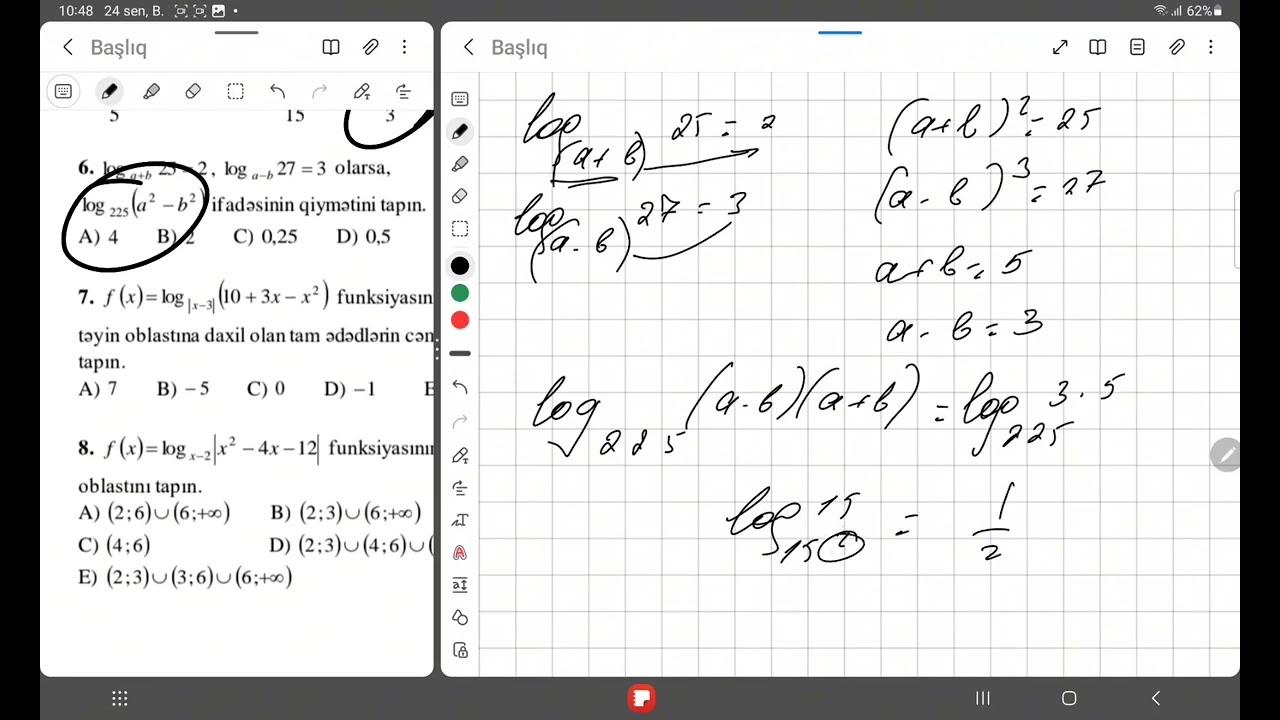 10:48 24 sen, B. 62%
Başlıq
5 15 3
6. log a+b 25 = 2, log a−b 27 = 3 olarsa,
log 225 (a² − b²) ifadəsinin qiymətini tapın.
A) 4 B) 2 C) 0,25 D) 0,5
7. f (x) = log |x−3| (10 + 3x − x²) funksiyasın
təyin oblastına daxil olan tam ədədlərin cəm
tapın.
A) 7 B) − 5 C) 0 D) −1 E
8. f (x) = log x−2 |x² − 4x − 12| funksiyasını
oblastını tapın.
A) (2;6)∪(6;+∞) B) (2;3)∪(6;+∞)
C) (4;6) D) (2;3)∪(4;6)∪(
E) (2;3)∪(3;6)∪(6;+∞)
Başlıq
log (a+b) 25 = 2
log (a-b) 27 = 3
(a+b)² = 25
(a-b)³ = 27
a+b = 5
a-b = 3
log 225 (a-b)(a+b) = log 225 3·5
log 15² 15 = 1/2